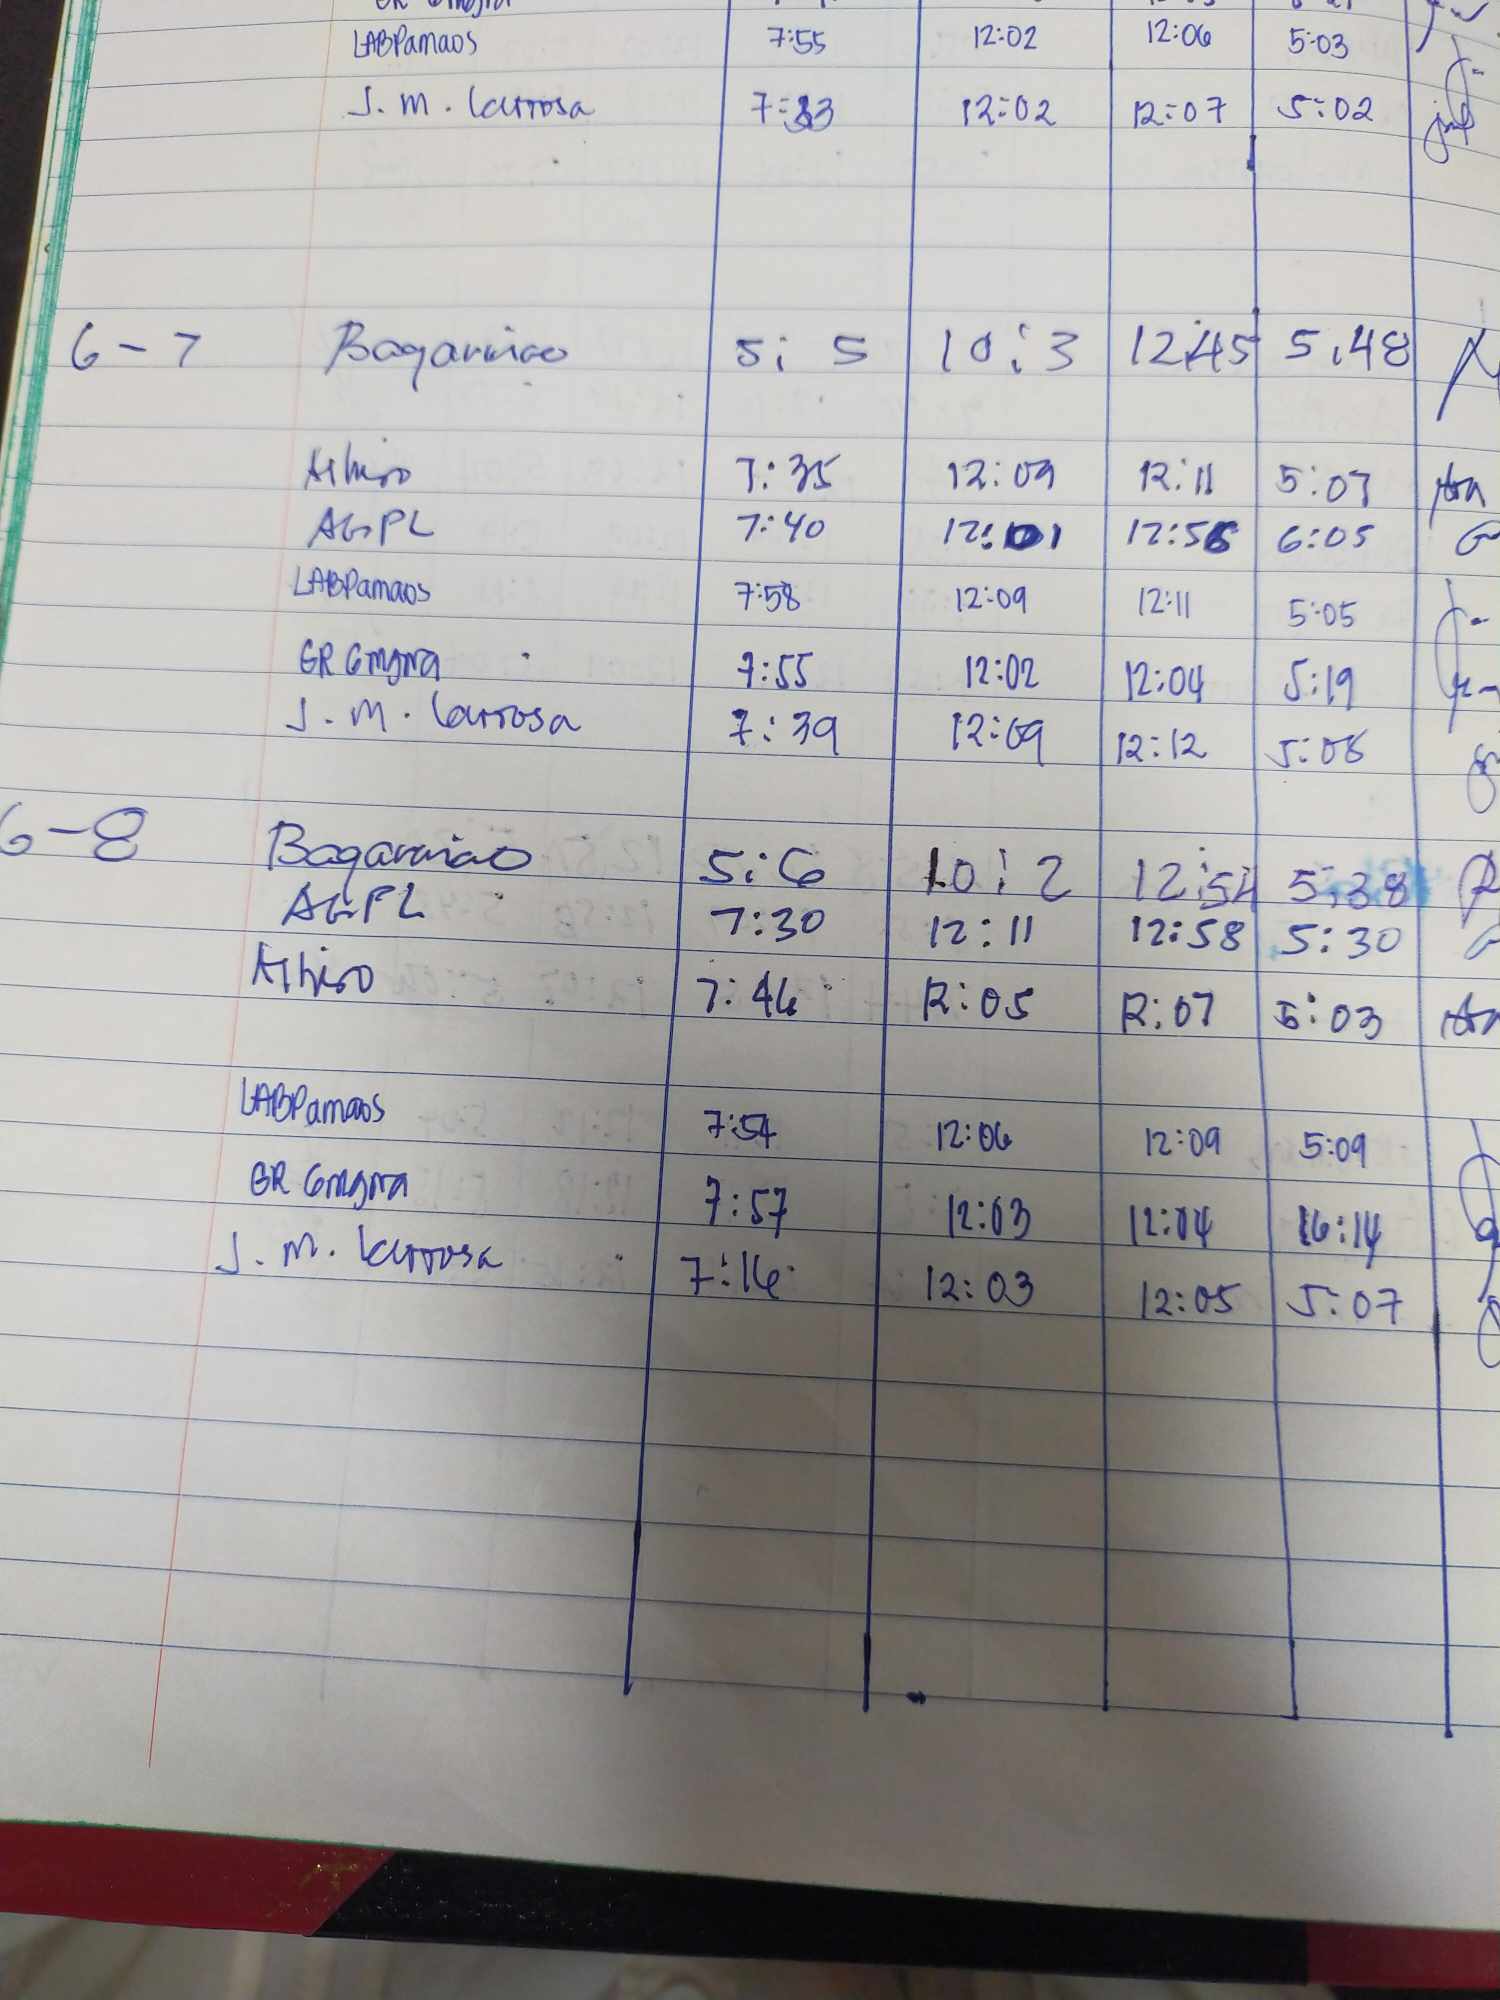 LABPamaos 7:55 12:02 12:06 5:03
J. M. Larrosa 7:33 12:02 12:07 5:02
6-7 Bagarinao 5: 5 10:3 12:45 5:48
7:35 12:09 12:11 5:07
AGPL 7:40 12:01 12:56 6:05
LABPamaos 7:58 12:09 12:11 5:05
GR 7:55 12:02 12:04 5:19
J. M. Larrosa 7:39 12:09 12:12 5:08
6-8 Bagarinao 5:6 10:2 12:54 5:38
AGPL 7:30 12:11 12:58 5:30
7:46 12:05 12:07 5:03
LABPamaos 7:54 12:06 12:09 5:09
GR 7:57 12:03 12:04 16:14
J. M. Larrosa 7:16 12:03 12:05 5:07